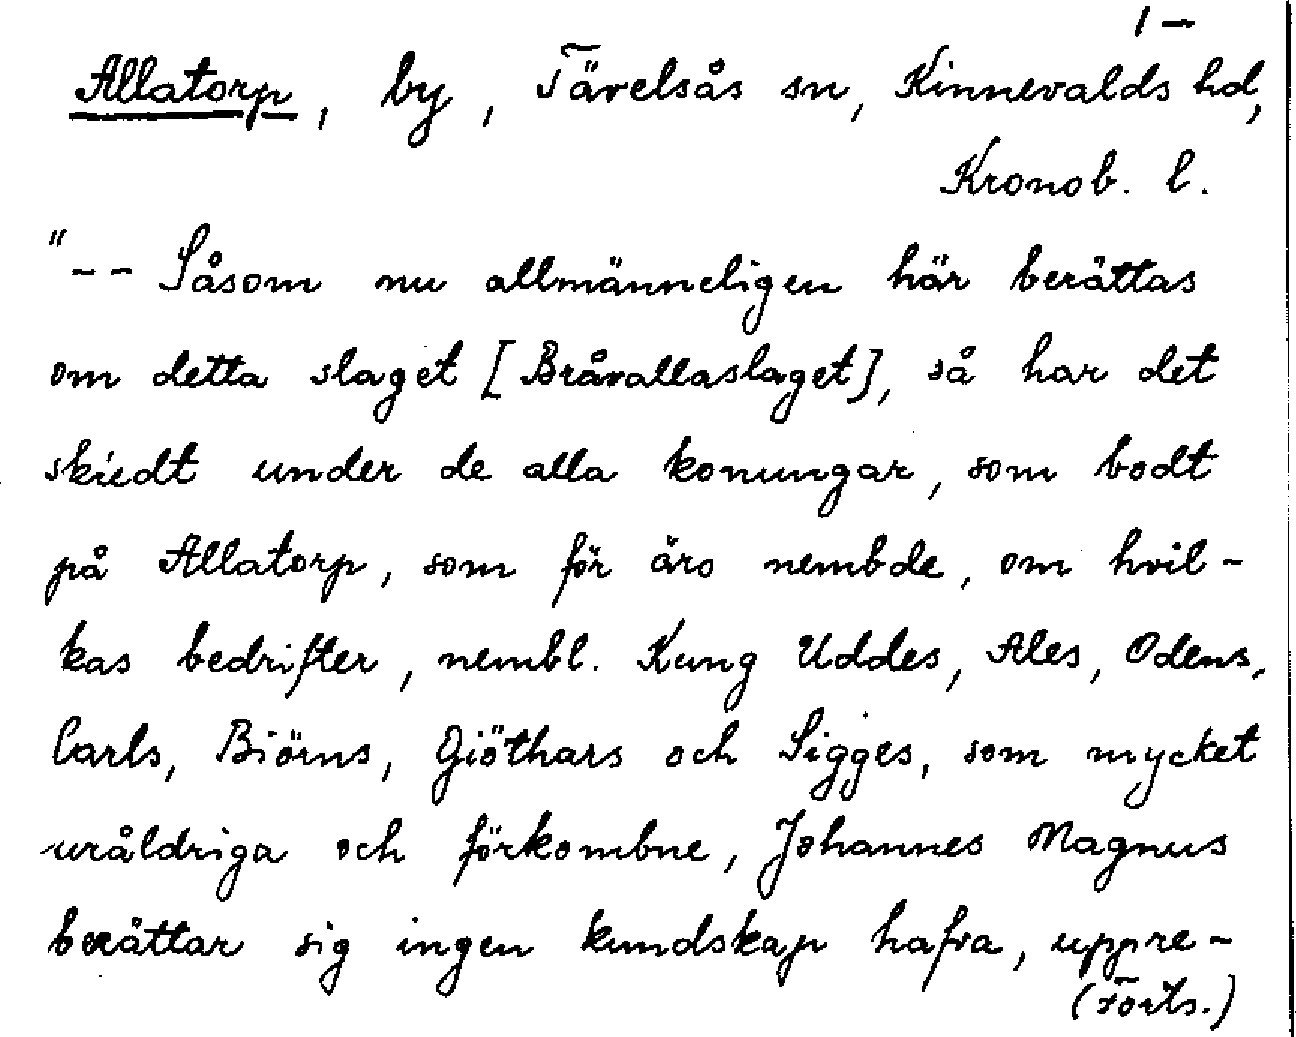 1 –
Allatorp, by, Tävelsås sn, Kinnevalds hd,
Kronob. l.
"-- Såsom nu allmänneligen här berättas
om detta slaget [Bråvallaslaget], så har det
skiedt under de alla konungar, som bodt
på Allatorp, som för äro nembde, om hvil-
kas bedrifter, nembl. Kung Uddes, Ales, Odens,
Carls, Biörns, Giöthars och Sigges, som mycket
uråldriga och förkombne, Johannes Magnus
berättar sig ingen kundskap hafva, uppre-
(Forts.)